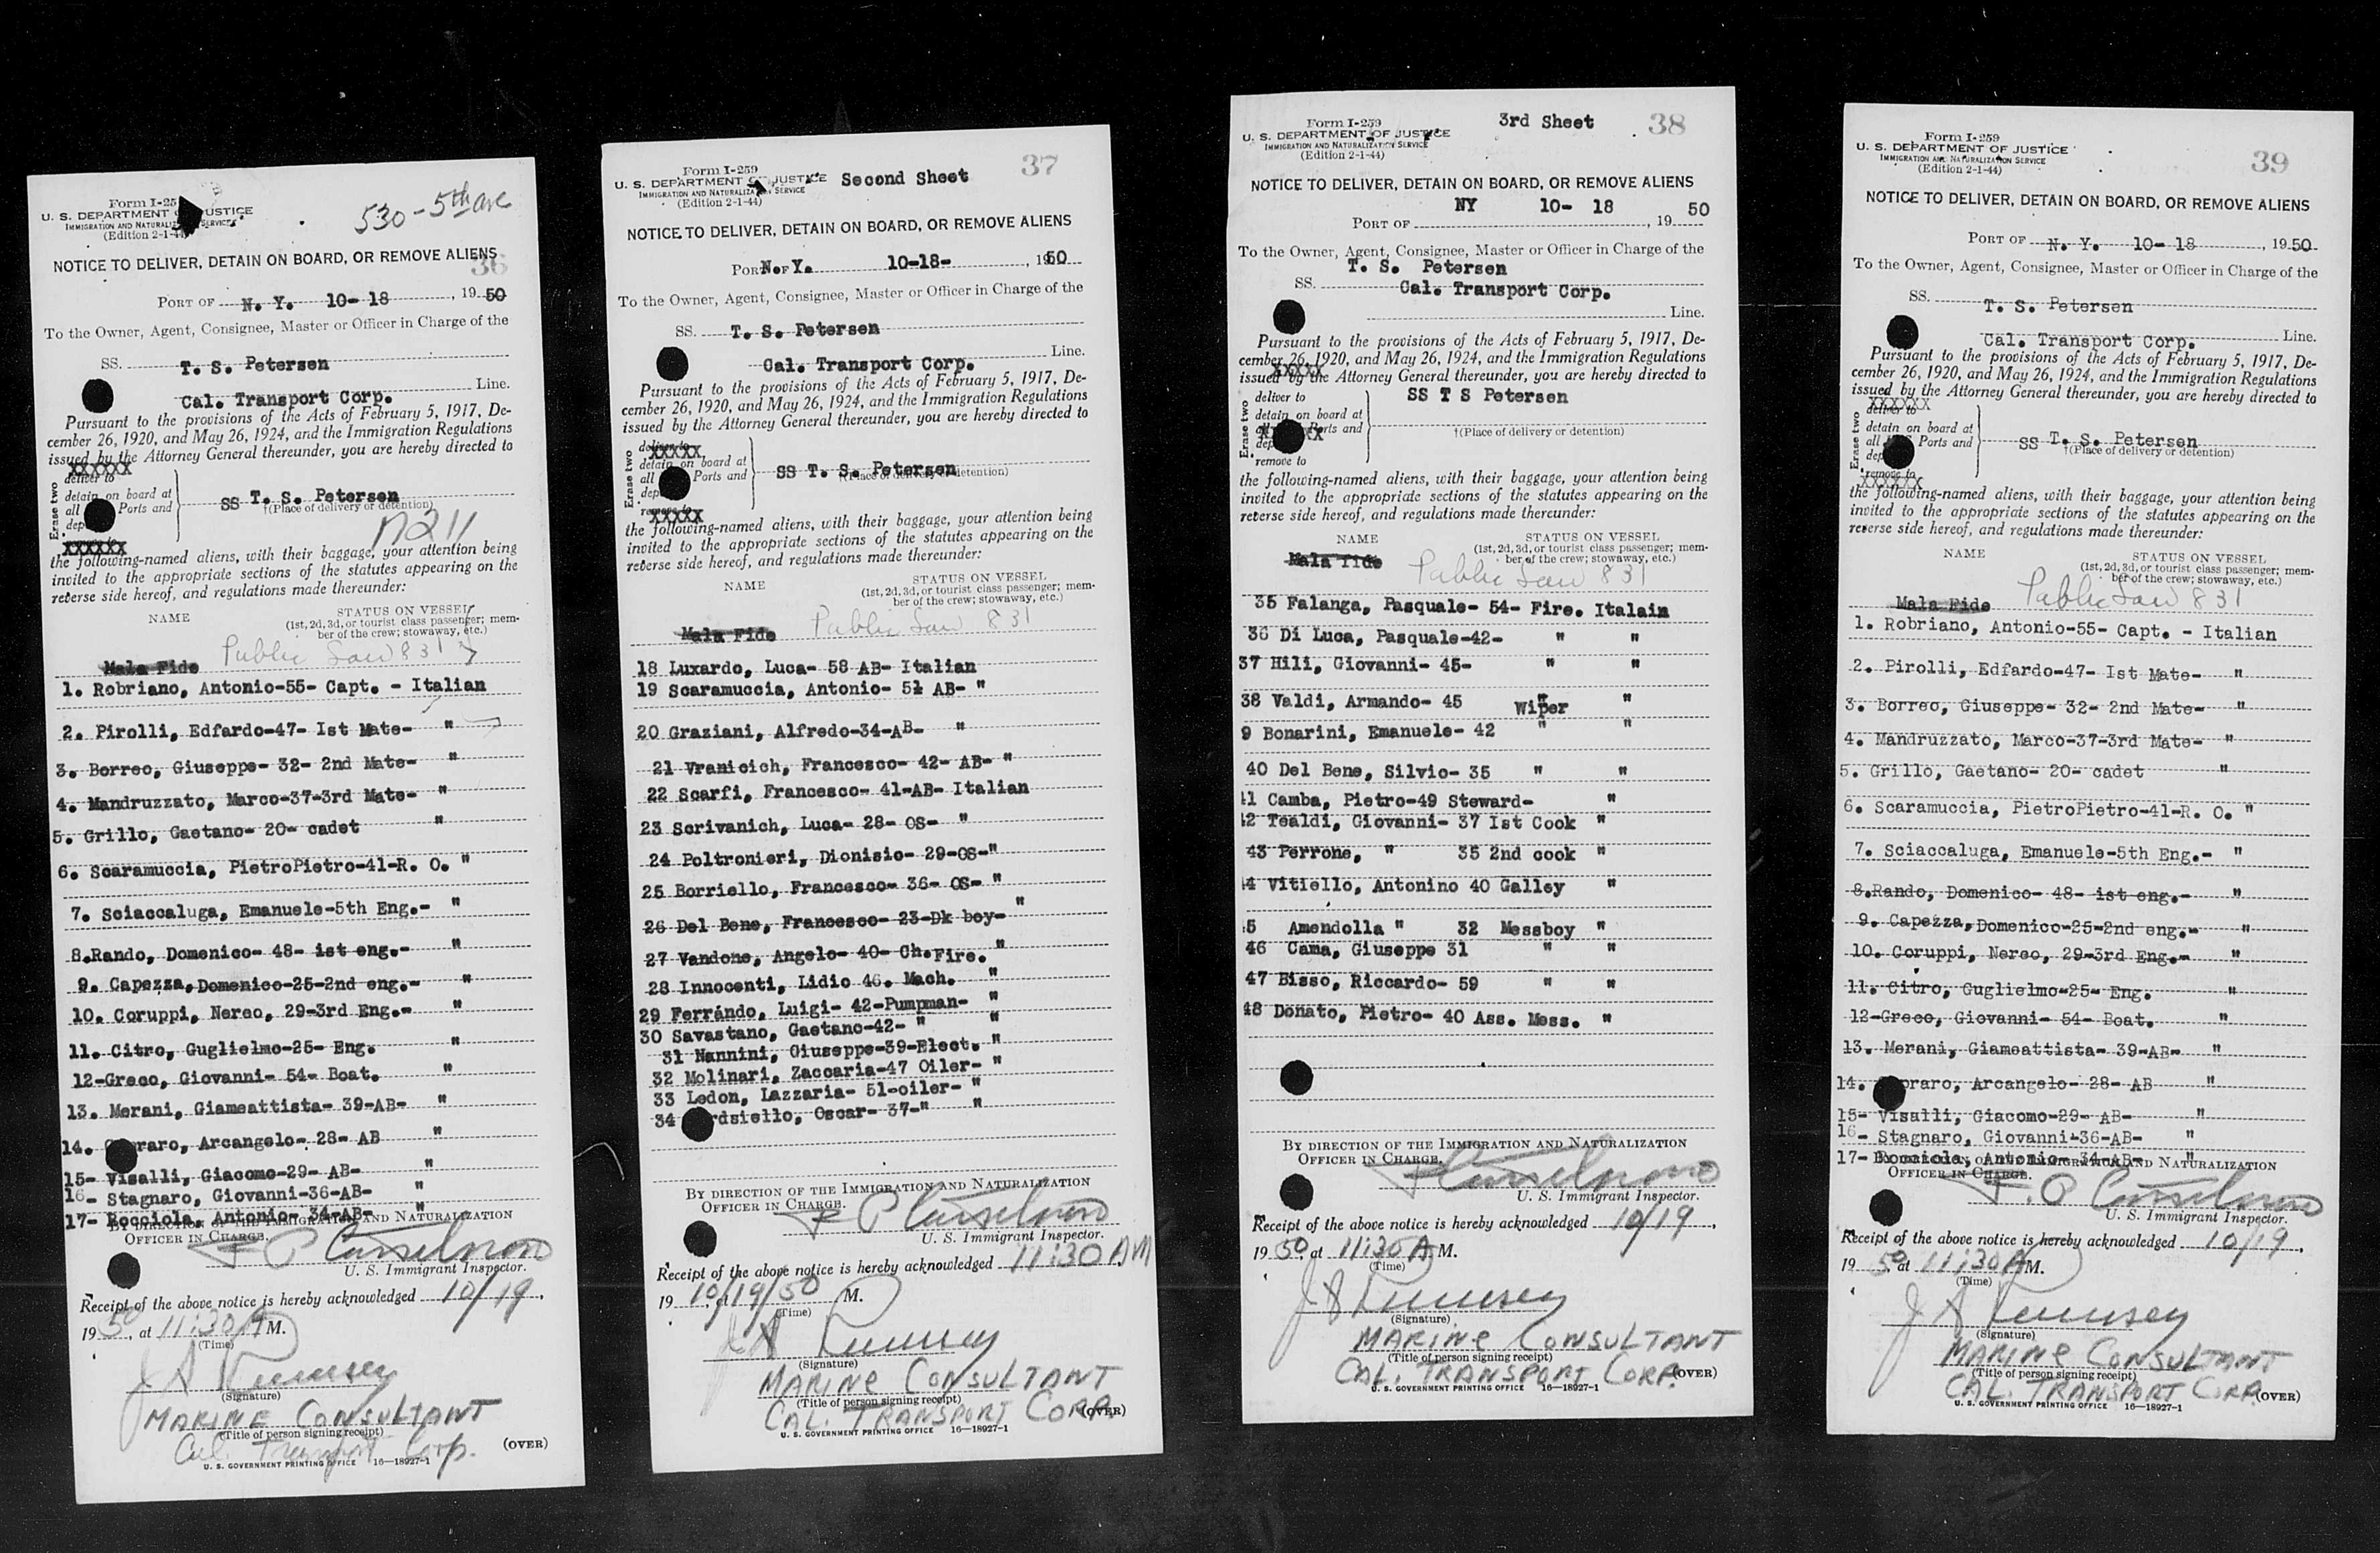 Form I-25
U. S. DEPARTMENT JUSTICE
IMMIGRATION AND SERVICE
(Edition 2-1-44)
530 - 5th ave
NOTICE TO DELIVER, DETAIN ON BOARD, OR REMOVE ALIENS
36
PORT OF N. Y. 10- 18, 19 50
To the Owner, Agent, Consignee, Master or Officer in Charge of the
SS. T. S. Petersen
Cal. Transport Corp. Line.
Pursuant to the provisions of the Acts of February 5, 1917, De-
cember 26, 1920, and May 26, 1924, and the Immigration Regulations
issued by the Attorney General thereunder, you are hereby directed to
XXXXXX
Erase two
deliver to
detain on board at
all Ports and
dep
SS T. S. Petersen
†(Place of delivery or detention)
XXXXXX
the following-named aliens, with their baggage, your attention being
invited to the appropriate sections of the statutes appearing on the
reverse side hereof, and regulations made thereunder:
NAME STATUS ON VESSEL
(1st, 2d, 3d, or tourist class passenger; mem-
ber of the crew; stowaway, etc.)
Mala Fide Public Law 831
1. Robriano, Antonio-55- Capt. - Italian
2. Pirolli, Edfardo-47- Ist Mate- "
3. Borreo, Giuseppe- 32- 2nd Mate- "
4. Mandruzzato, Marco-37-3rd Mate- "
5. Grillo, Gaetano- 20- cadet "
6. Scaramuccia, PietroPietro-41-R. O. "
7. Sciaccaluga, Emanuele-5th Eng.- "
8.Rando, Domenico- 48- ist eng.- "
9. Capezza,Domenico-25-2nd eng.- "
10. Coruppi, Nereo, 29-3rd Eng.- "
11. Citro, Guglielmo-25- Eng. "
12-Greco, Giovanni- 54- Boat. "
13. Merani, Giameattista- 39-AB- "
14. raro, Arcangelo- 28- AB "
15- Visalli, Giacomo-29- AB- "
16- Stagnaro, Giovanni-36-AB- "
17- Bocciola, Antonio- 34-AB- "
BY DIRECTION OF THE IMMIGRATION AND NATURALIZATION
OFFICER IN CHARGE.
U. S. Immigrant Inspector.
Receipt of the above notice is hereby acknowledged 10/19,
19 50, at 11:30 A M.
(Time)
J A Rumsey
(Signature)
MARINE CONSULTANT
(Title of person signing receipt)
Cal. Transport Corp.
(OVER)
U. S. GOVERNMENT PRINTING OFFICE 16—18927-1
Form I-259
U. S. DEPARTMENT OF JUSTICE Second Sheet 37
IMMIGRATION AND SERVICE
(Edition 2-1-44)
NOTICE TO DELIVER, DETAIN ON BOARD, OR REMOVE ALIENS
PORT OF N. Y. 10-18-, 1950
To the Owner, Agent, Consignee, Master or Officer in Charge of the
SS. T. S. Petersen
Cal. Transport Corp. Line.
Pursuant to the provisions of the Acts of February 5, 1917, De-
cember 26, 1920, and May 26, 1924, and the Immigration Regulations
issued by the Attorney General thereunder, you are hereby directed to
Erase two
deliver to
XXXXX
detain on board at
all Ports and
dep
SS T. S. Petersen
†(Place of delivery or detention)
remove to
XXXXX
the following-named aliens, with their baggage, your attention being
invited to the appropriate sections of the statutes appearing on the
reverse side hereof, and regulations made thereunder:
NAME STATUS ON VESSEL
(1st, 2d, 3d, or tourist class passenger; mem-
ber of the crew; stowaway, etc.)
Mala Fide Public Law 831
18 Luxardo, Luca- 58 AB- Italian
19 Scaramuccia, Antonio- 51 AB- "
20 Graziani, Alfredo-34-AB- "
21 Vranicich, Francesco- 42- AB- "
22 Scarfi, Francesco- 41-AB- Italian
23 Scrivanich, Luca- 28- OS- "
24 Poltronieri, Dionisio- 29-OS-"
25 Borriello, Francesco- 36- OS- "
26 Del Bene, Francesco- 23-Dk boy- "
27 Vandone, Angelo- 40- Ch.Fire. "
28 Innocenti, Lidio 46. Mach. "
29 Ferrándo, Luigi- 42-Pumpman- "
30 Savastano, Gaetano-42- " "
31 Nannini, Giuseppe-39-Elect. "
32 Molinari, Zaccaria-47 Oiler- "
33 Ledon, Lazzaria- 51-oiler- "
34 rdsiello, Oscar- 37-" "
BY DIRECTION OF THE IMMIGRATION AND NATURALIZATION
OFFICER IN CHARGE.
U. S. Immigrant Inspector.
Receipt of the above notice is hereby acknowledged 11:30 AM
19 10/19/50 M.
(Time)
J A Rumsey
(Signature)
MARINE CONSULTANT
(Title of person signing receipt)
CAL. TRANSPORT CORP.
(OVER)
U. S. GOVERNMENT PRINTING OFFICE 16—18927-1
Form I-259
U. S. DEPARTMENT OF JUSTICE 3rd Sheet 38
IMMIGRATION AND NATURALIZATION SERVICE
(Edition 2-1-44)
NOTICE TO DELIVER, DETAIN ON BOARD, OR REMOVE ALIENS
NY 10- 18 50
PORT OF , 19
To the Owner, Agent, Consignee, Master or Officer in Charge of the
T. S. Petersen
SS. Cal. Transport Corp.
Line.
Pursuant to the provisions of the Acts of February 5, 1917, De-
cember 26, 1920, and May 26, 1924, and the Immigration Regulations
XXXXX
issued by the Attorney General thereunder, you are hereby directed to
Erase two
deliver to SS T S Petersen
detain on board at
Ports and
dep
†(Place of delivery or detention)
remove to
the following-named aliens, with their baggage, your attention being
invited to the appropriate sections of the statutes appearing on the
reverse side hereof, and regulations made thereunder:
NAME STATUS ON VESSEL
(1st, 2d, 3d, or tourist class passenger; mem-
ber of the crew; stowaway, etc.)
Mala fide Public Law 831
35 Falanga, Pasquale- 54- Fire. Italain
36 Di Luca, Pasquale-42- " "
37 Hili, Giovanni- 45- " "
38 Valdi, Armando- 45 Wiper "
9 Bonarini, Emanuele- 42 " "
40 Del Bene, Silvio- 35 " "
41 Camba, Pietro-49 Steward- "
42 Tealdi, Giovanni- 37 Ist Cook "
43 Perrone, " 35 2nd cook "
44 Vitiello, Antonino 40 Galley "
5 Amendolla " 32 Messboy "
46 Cama, Giuseppe 31 " "
47 Bisso, Riccardo- 59 " "
48 Donato, Pietro- 40 Ass. Mess. "
BY DIRECTION OF THE IMMIGRATION AND NATURALIZATION
OFFICER IN CHARGE.
U. S. Immigrant Inspector.
Receipt of the above notice is hereby acknowledged 10/19,
19 50, at 11:30 A M.
(Time)
J A Rumsey
(Signature)
MARINE CONSULTANT
(Title of person signing receipt)
CAL. TRANSPORT CORP.
(OVER)
U. S. GOVERNMENT PRINTING OFFICE 16—18927-1
Form I-259
U. S. DEPARTMENT OF JUSTICE 39
IMMIGRATION AND NATURALIZATION SERVICE
(Edition 2-1-44)
NOTICE TO DELIVER, DETAIN ON BOARD, OR REMOVE ALIENS
PORT OF N. Y. 10- 18, 1950
To the Owner, Agent, Consignee, Master or Officer in Charge of the
SS. T. S. Petersen
Cal. Transport Corp. Line.
Pursuant to the provisions of the Acts of February 5, 1917, De-
cember 26, 1920, and May 26, 1924, and the Immigration Regulations
issued by the Attorney General thereunder, you are hereby directed to
XXXXXX
Erase two
deliver to
detain on board at
all Ports and
dep
SS T. S. Petersen
†(Place of delivery or detention)
remove to
XXXXXX
the following-named aliens, with their baggage, your attention being
invited to the appropriate sections of the statutes appearing on the
reverse side hereof, and regulations made thereunder:
NAME STATUS ON VESSEL
(1st, 2d, 3d, or tourist class passenger; mem-
ber of the crew; stowaway, etc.)
Mala Fide Public Law 831
1. Robriano, Antonio-55- Capt. - Italian
2. Pirolli, Edfardo-47- Ist Mate- "
3. Borreo, Giuseppe- 32- 2nd Mate- "
4. Mandruzzato, Marco-37-3rd Mate- "
5. Grillo, Gaetano- 20- cadet "
6. Scaramuccia, PietroPietro-41-R. O. "
7. Sciaccaluga, Emanuele-5th Eng.- "
8.Rando, Domenico- 48- ist eng.- "
9. Capezza,Domenico-25-2nd eng.- "
10. Coruppi, Nereo, 29-3rd Eng.- "
11. Citro, Guglielmo-25- Eng. "
12-Greco, Giovanni- 54- Boat. "
13. Merani, Giameattista- 39-AB- "
14. raro, Arcangelo- 28- AB "
15- Visalli, Giacomo-29- AB- "
16- Stagnaro, Giovanni-36-AB- "
17- Bocciola, Antonio- 34-AB- "
AND NATURALIZATION
OFFICER IN CHARGE.
U. S. Immigrant Inspector.
Receipt of the above notice is hereby acknowledged 10/19,
19 50 at 11:30 A M.
(Time)
J A Rumsey
(Signature)
MARINE CONSULTANT
(Title of person signing receipt)
CAL. TRANSPORT CORP.
(OVER)
U. S. GOVERNMENT PRINTING OFFICE 16—18927-1